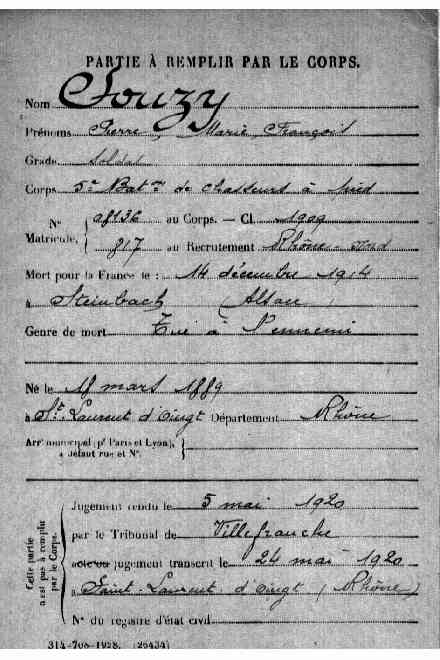 PARTIE À REMPLIR PAR LE CORPS.
Nom Souzy
Prénoms Pierre, Marie, François
Grade Soldat
Corps 5e Bat.on de Chasseurs à pied
N° Matricule. 08136 au Corps. — Cl. 1909
817 au Recrutement Rhône-Sud
Mort pour la France le : 14 décembre 1914
à Steinbach (Alsace)
Genre de mort Tué à l'ennemi
Né le 18 mars 1889
à St. Laurent d'Oingt Département Rhône
Arr' municipal (p' Paris et Lyon),
à défaut rue et N°.
Cette partie
n'est pas à remplir
par le Corps.
Jugement rendu le 5 mai 1920
par le Tribunal de Villefranche
acte ou jugement transcrit le 24 mai 1920
à Saint-Laurent d'Oingt (Rhône)
N° du registre d'état civil
314-708-1928. (26434)